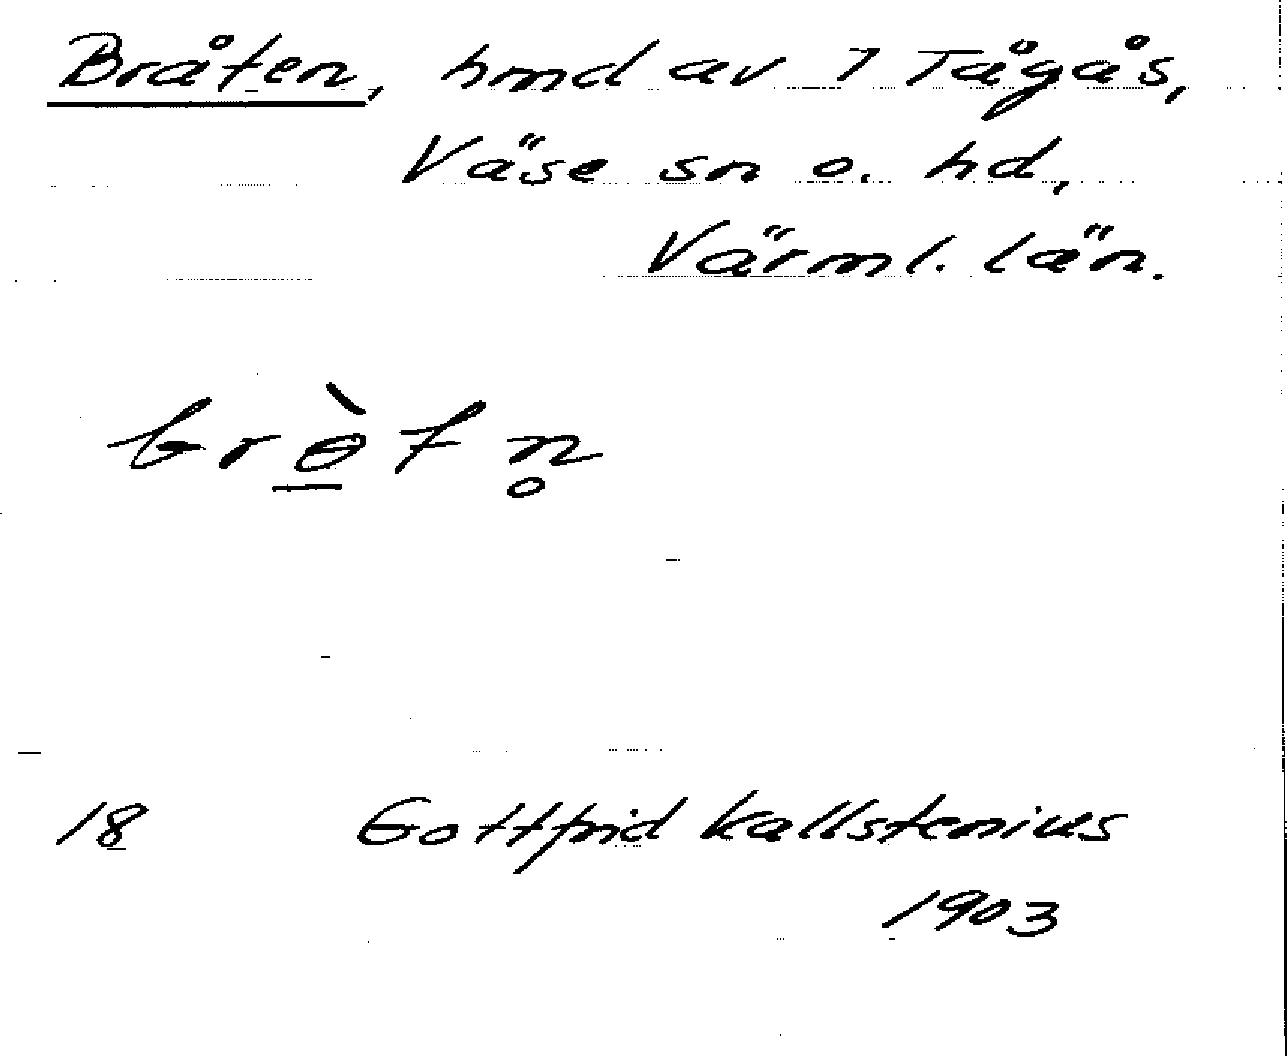 Bråten, hmd av 7 Tågås,
Väse sn o. hd,
Värml. län.
brɵ̠̀tn̥
18 Gottfrid Kallstenius
1903